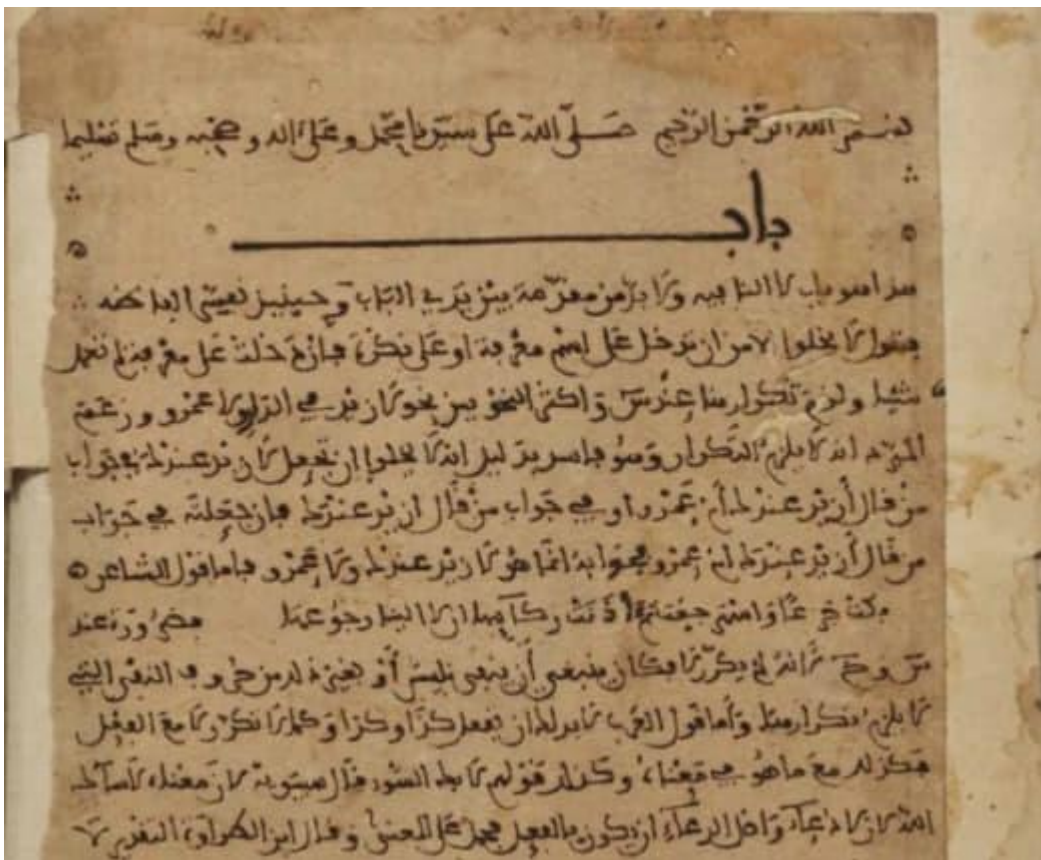 بسم الله الرحمن الرحيم صلى الله على سيدنا محمد وعلى اله وصحبه وسلم تسليما
باب
هذا هو باب لا النافيه ولا بد من مقدمة بين يدي الباب وحينئذ
فنقول لا يخلوا لا من ان تدخل على اسم معرفة او على نكرة فان دخلت على معرفة لم تعمل
شيئا ولزم تكرارها عند س واكثر النحويين نحو لا زيد في الدار ولا عمرو وزعم
المبرد انه لا يلزم التكرار وهو فاسد بدليل انه لا يخلوا ان تجعل لا زيد عندك في جواب
من قال أزيد عندك أم عمرو او في جواب من قال ازيد عندك فان جعلته في جواب
من قال أزيد عندك ام عمرو فجوابه انما هو لا زيد عندك ولا عمرو فاما قول الشاعر
بكت جزعا واسترجعت ثم أذنت ركآئبها ان لا الينا رجوعها فضرورة عند
س أنه لم يكررها فكان ينبغي أن ينفى بليس أو بغير ذلك من حروف النفي التي
لا يلزم تكرارها وأما قول العرب لا نولك ان تفعل كذا وكذا وكما لا تكرر لا مع الفعل
فكذلك مع ما هو في معناه وكذلك قولهم لا بك السوء قال سيبويه لان معناه لا ساءك
الله لانه دعاء واصل الدعاء ان يكون بالفعل فحمل على المعنى وقال ابن الطراوة التقدير لا